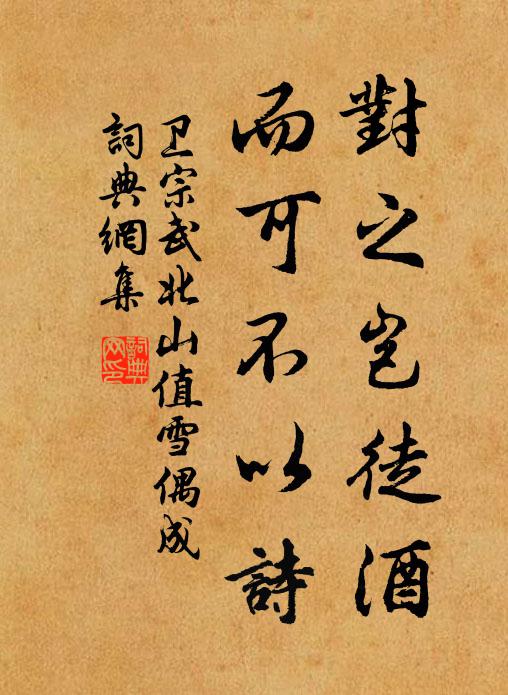 對之岂徒酒
而可不以詩
卫宗武北山值雪偶成
詞典網集
詞典
网印